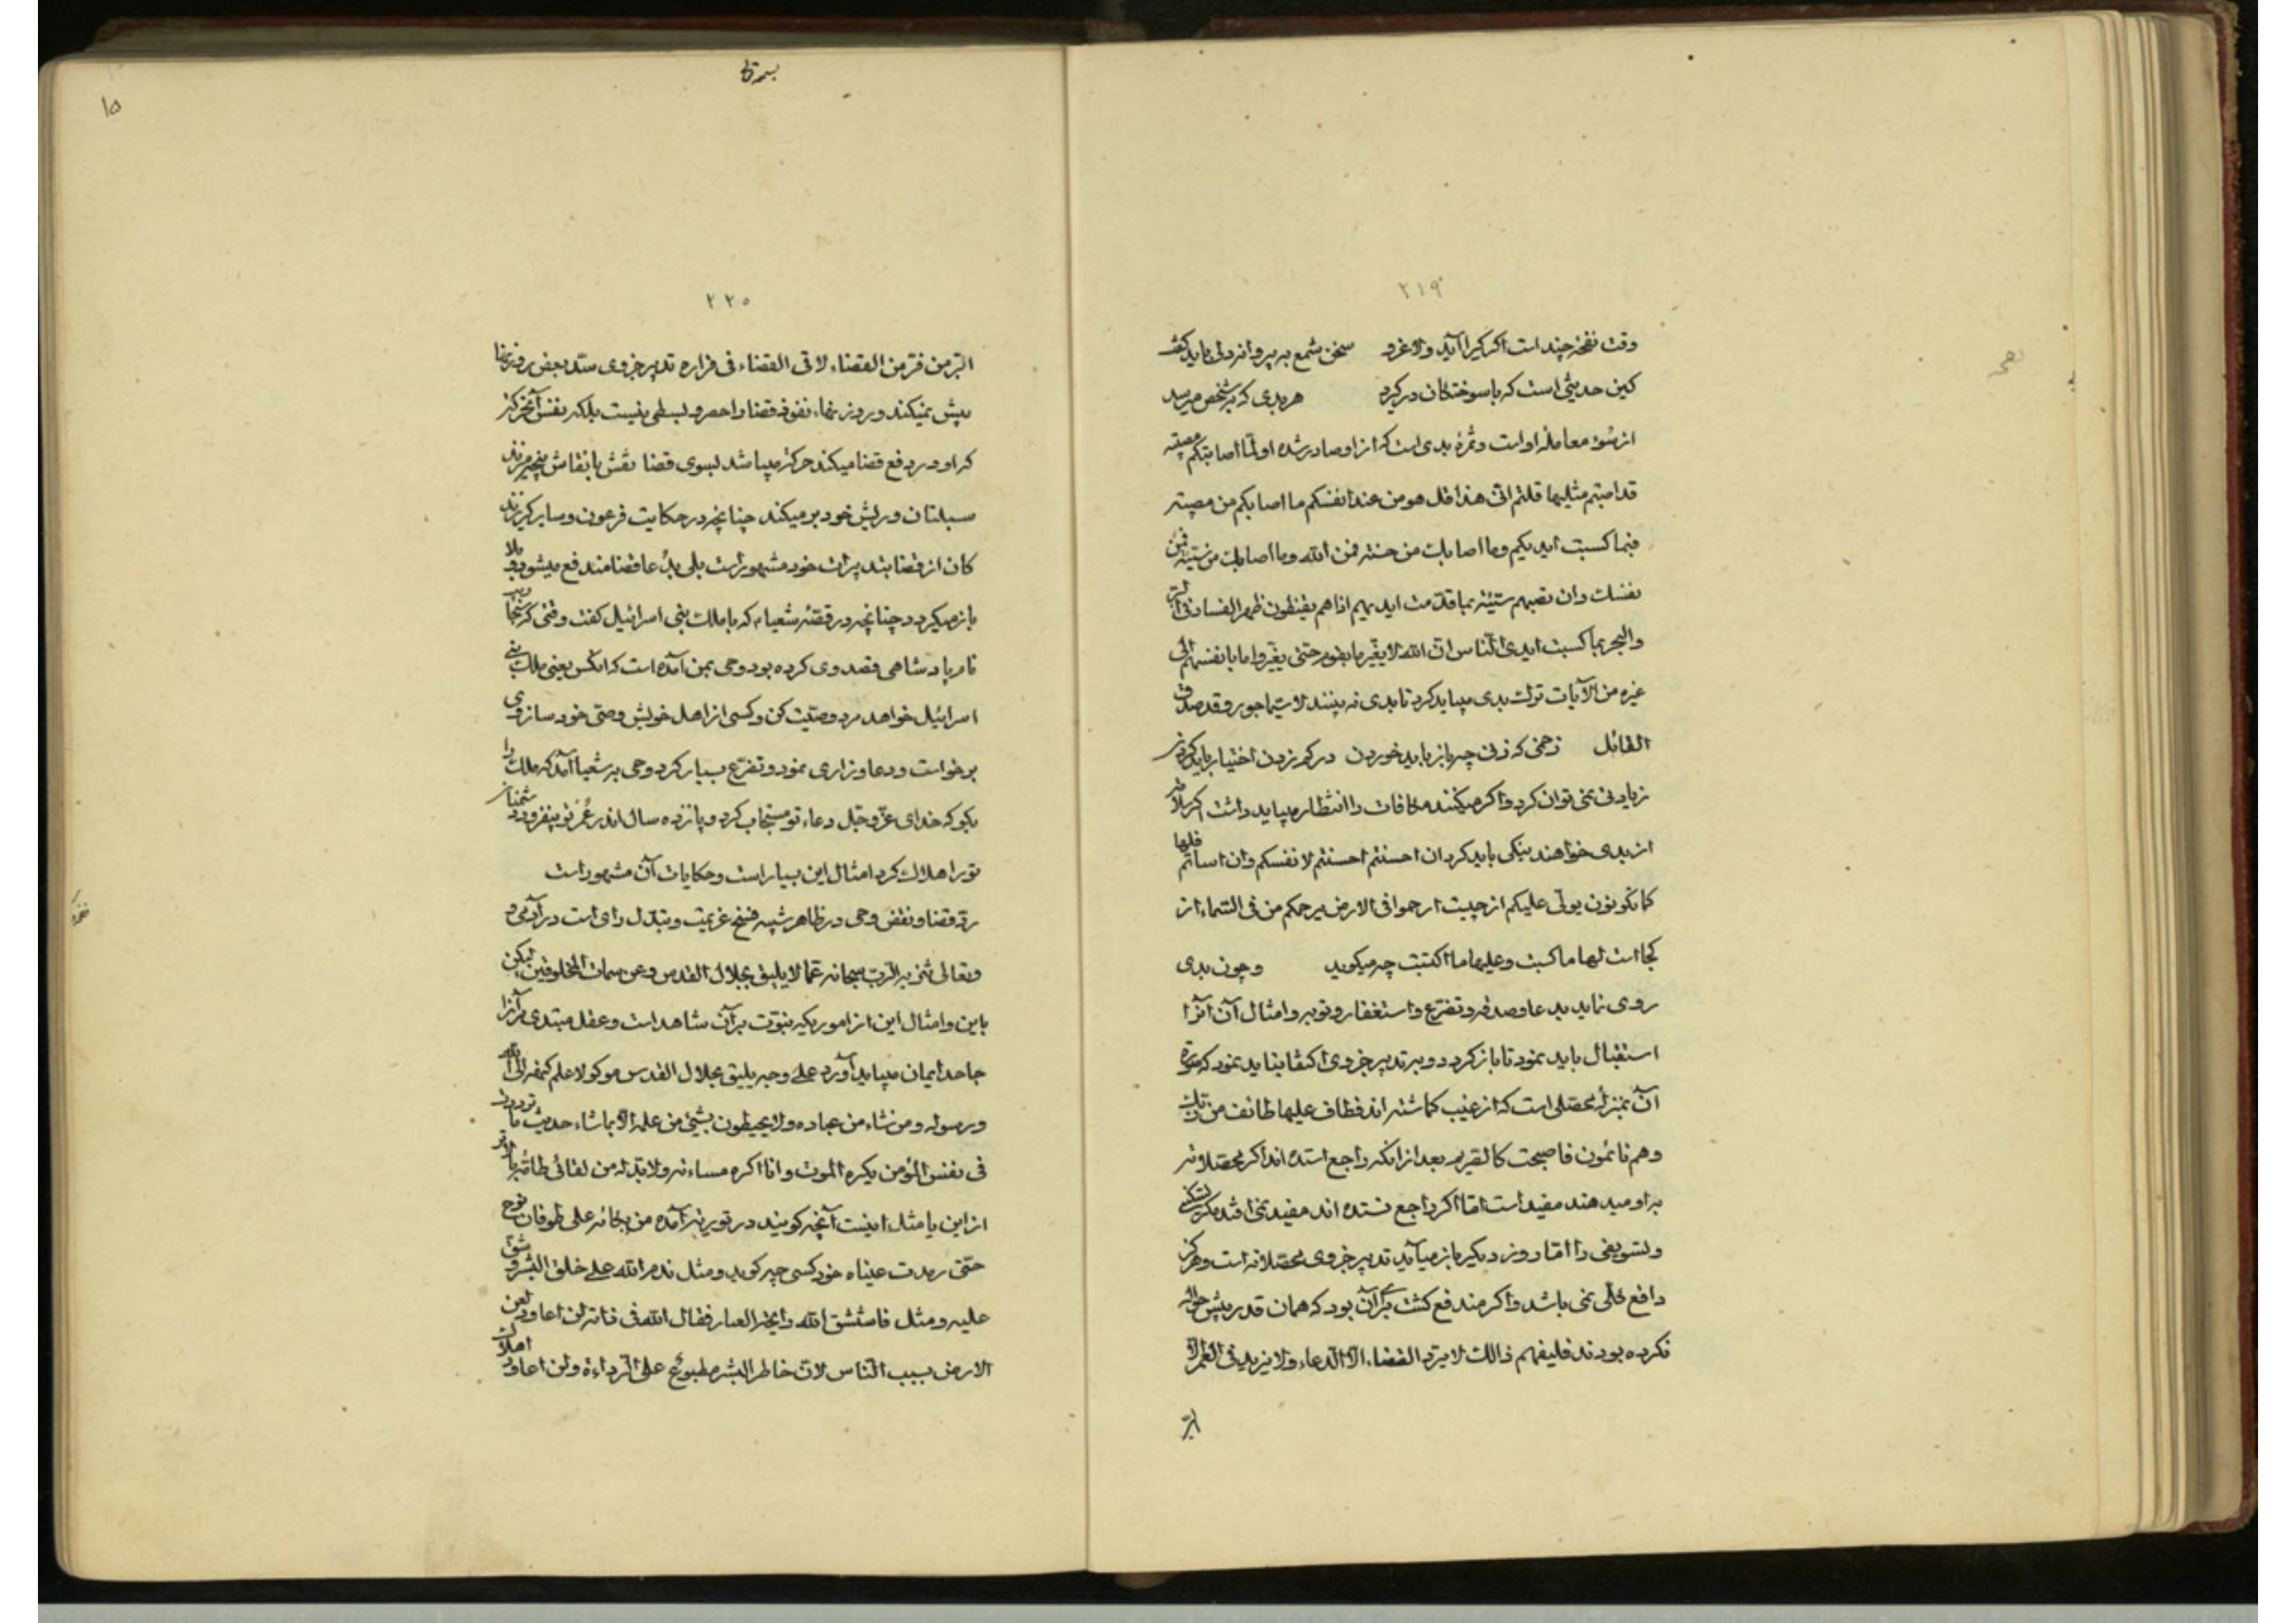 ۲۱۹
وقت نفخهٔ چند است اکر کیرا آید ولا غرو سخن شمع به پروانه دلی باید کفت
کین حدیثی است که با سوختکان درکیرد هر بدی که بر شخص میرسد
از سوء معامله او است وثمرهٔ بدی است که از او صادر شده اولمّا اصابتکم مصیبة
قد اصبتم مثلیها قلتم انّی هذا قل هو من عند انفسکم ما اصابکم من مصیبة
فبما کسبت ایدیکم وما اصابك من حسنة فمن الله وما اصابك من سیّئة فمن
نفسك وان تصبهم سیّئة بما قدّمت ایدیهم اذا هم یقنطون ظهر الفساد فی البرّ
والبحر بما کسبت ایدی النّاس انّ الله لا یغیّر ما بقوم حتّی یغیّروا ما بانفسهم الی
غیره من الآیات ترك بدی میباید کرد تا بدی نه بینند لا سیّما جور وقد صدق
القائل زخمی که زنی چه باز باید خوردن در کم زدن اختیار باید کردن
زیادتی نمی توان کرد واکر میکنند مکافات را انتظار میباید داشت اکر بلا بد
از بدی خواهند نیکی باید کرد ان احسنتم احسنتم لانفسکم وان اسأتم فلها
کما تکونون یولّی علیکم از چیست ارحموا فی الارض یرحمکم من فی السّماء از
کجا است لها ما کسبت وعلیها ما اکتسبت چه میکوید وچون بدی
روی نماید بدعا وصدقه وتضرّع واستغفار وتوبه وامثال آن آنرا
استقبال باید نمود تا باز کردد وبر تدبیر جزوی اکتفا نباید نمود که
آن بمنزلهٔ محصّلی است که از غیب کماشته اند فطاف علیها طائف من ربّك
وهم نائمون فاصبحت کالصّریم بعد از آنکه راجع استده اند اکر محصّلانه
باو میدهند مفید است امّا اکر راجع نستده اند مفید نمی افتد مکر تسکین
وتسویفی را امّا روز دیکر باز میآید تدبیر جزوی محصّلانه است وهرکز
دافع کلّی نمی باشد واکر مندفع کشت بر آن بود که همان قدر پیش حواله
نکرده بودند فلیفهم ذالك لا یردّ القضاء الّا الدّعاء ولا یزید فی العمر الّا
البرّ
بسمه تعالی
۱۵
۲۲۰
البرّ من فرّ من القضاء لاقی القضاء فی فراره تدبیر جزوی ستد بعض روزنها
بیش نمیکند وروزنهاء نفوذ قضا را حصر وبسطی نیست بلکه نفس آن حرکت
که او در دفع قضا میکند حرکت میباشد بسوی قضا نقش با نقاش پنجه میزند
سبلتان وریش خود بر میکند چنانچه در حکایت فرعون وسایر کریزند
کان از قضا بتدبیرات خود مشهور است بلی بدعا قضا مندفع میشود وبلا
باز میکردد چنانچه در قصّهٔ شعیاء که با ملك بنی اسرائیل کفت وقتی که
نام پادشاهی قصد وی کرده بود وحی بمن آمده است که آنکس یعنی ملك بنی
اسرائیل خواهد مرد وصیّت کن وکسی از اهل خویش وصیّ خود ساز وی
برخواست ودعا وزاری نمود وتضرّع بسیار کرد وحی به شعیا آمد که ملك را
بکو که خدای عزّ وجلّ دعاء تو مستجاب کرد وپانزده سال اندر عمر تو بیفزود ودشمنان
تورا هلاك کرد امثال این بسیار است وحکایات آن مشهور است
ردّ قضا ونقض وحی در ظاهر شبیه فسخ عزیمت وتبدّل رای است در آدمی و
وتعالی تنزیه الرّبّ سبحانه عمّا لا یلیق بجلال القدس وعن سمات المخلوقین لیکن
باین وامثال این از امور یکه نبوّت بر آن شاهد است وعقل مبتدی مر آنرا
جاحد ایمان میباید آورد علی وجه یلیق بجلال القدس موکولا علم کنهه الی الله
ورسوله ومن شاء من عباده ولا یحیطون بشیئ من علمه الّا بما شاء حدیث ما تردّدت
فی نفس المؤمن یکره الموت وانا اکره مساءته ولا بدّ له من لقائی
از این یا مثل اینست آنچه کویند در توریة آمده من بکائه علی طوفان نوح
حتّی رمدت عیناه خود کسی چه کوید ومثل ندم الله علی خلق البشر وشقّ
علیه ومثل فاستنشق الله رایحة العبار فقال الله فی ذاته لن اعاود لعن
الارض بسبب النّاس لانّ خاطر البشر مطبوع علی الرّداءة ولن اعاود اهلاك